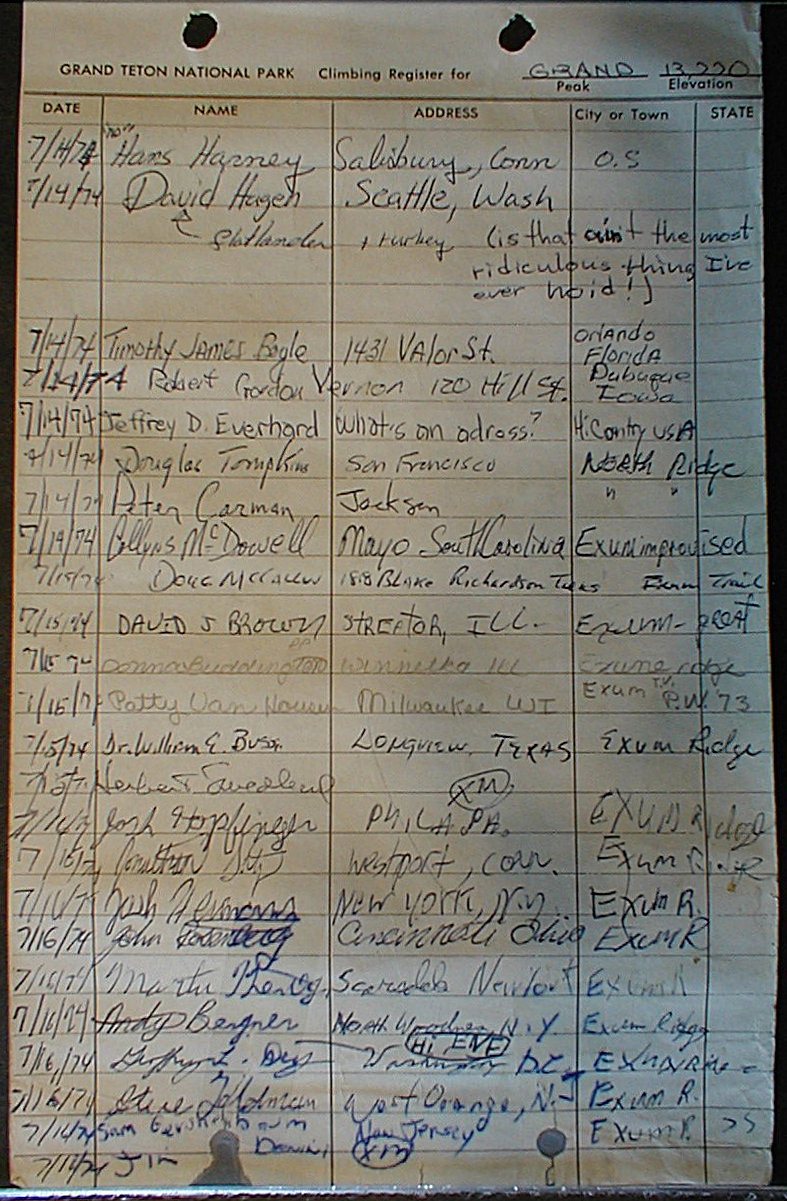 GRAND TETON NATIONAL PARK Climbing Register for GRAND 13,770
Peak Elevation
DATE NAME ADDRESS City or Town STATE
7/14/74 "no" Hans Harney Salisbury, Conn O.S
7/14/74 David Hagen Seattle, Wash
flatlander + turkey (is that ain't the most
ridiculous thing I've
ever hoid!)
7/14/74 Timothy JAMES Bogle 1431 VAlor St. Orlando Florida
7/14/74 Robert Gordon Vernon 120 Hill St. Dubuque Iowa
7/14/74 Jeffrey D. Everhard What's an adress? Hi Contry USA
7/14/74 Douglas Tompkins San Francisco North Ridge
7/14/74 Peter Carman Jackson " "
7/14/74 Collyns McDowell Mayo South Carolina Exum improvised
7/15/74 Doug 1818 Blake Richardson Texas Exum Trail
7/15/74 DAVID J BROWN STREATOR, ILL. Exum - great
7/15 74 Donna Buddington Winnetka Ill Exum ridge
7/15/74 Patty Van Milwaukee WI Exum P.W. 73
7/15/74 Dr. William E. Longview, Texas Exum Ridge
Herbert
Josh Hopfinger PHILA PA. EXUM Ridge
7/16/74 Jonathan Westport, Conn. Exum Ridge
Josh New York, N.Y. Exum R.
7/16/74 John Cincinnati Ohio Exum R
7/16/74 Scarsdale Exum R
7/16/74 Andy Bergner North N.Y. Exum Ridge
Hi EVE
7/16/74 Washington D.C. Exum
7/16/74 Steve Feldman West Orange, N.J Exum R.
7/16/74 Sam New Jersey Exum R.
7/16/74 Jim